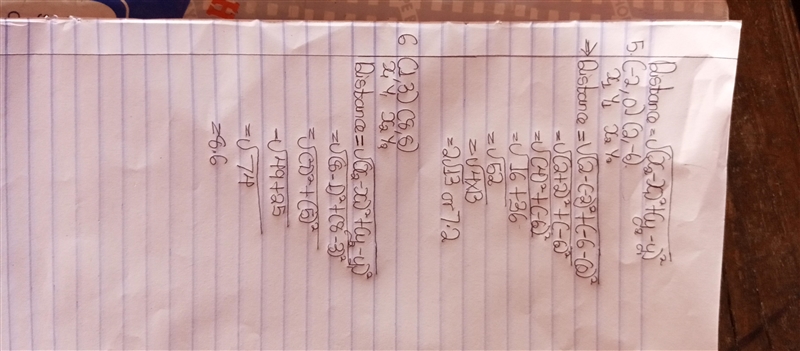 Distance = √(x₂-x₁)²+(y₂-y₁)²
5. (-2, 0) (2, -6)
x₁ y₁ x₂ y₂
→ Distance = √(2-(-2)²+(-6-0)²
= √(2+2)²+(-6)²
= √(4)²+(-6)²
= √16 + 36
= √52
= √4×13
= 2√13 or 7.2
6 (1, 3) (8, 8)
x₁ y₁ x₂ y₂
Distance = √(x₂-x₁)²+(y₂-y₁)²
= √(8-1)²+(8-3)²
= √(7)²+(5)²
= √49+25
= √74
= 8.6